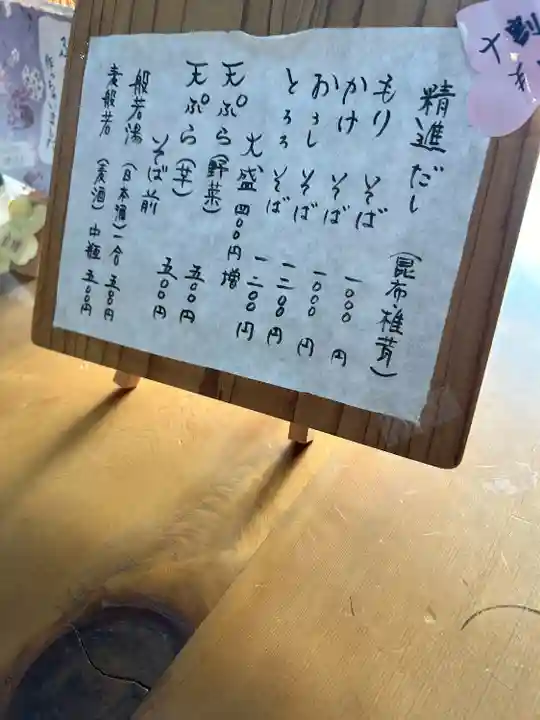 精進だし (昆布・椎茸)
もり そば 一〇〇〇円
かけ そば 一〇〇〇円
おろし そば 一二〇〇円
とろろ そば 一二〇〇円
大盛 四〇〇円増
天ぷら(野菜) 五〇〇円
天ぷら(草) 五〇〇円
そば前
般若湯(日本酒)一合 五〇〇円
麦般若(麦酒)中瓶 五〇〇円
十割